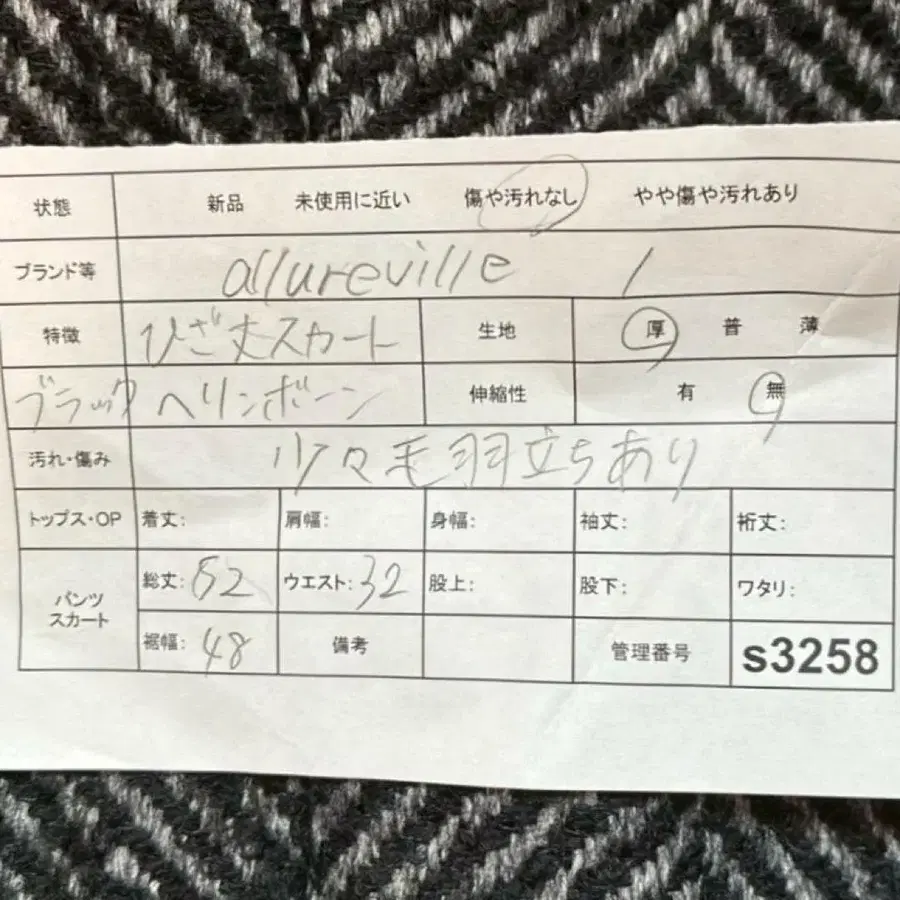 状態 新品 未使用に近い 傷や汚れなし やや傷や汚れあり
ブランド等 allureville 1
特徴 ひざ丈スカート 生地 厚 普 薄
ブラック ヘリンボーン 伸縮性 有 無
汚れ・傷み 少々毛羽立ちあり
トップス・OP 着丈: 肩幅: 身幅: 袖丈: 裄丈:
パンツ スカート 総丈: 52 ウエスト: 32 股上: 股下: ワタリ:
裾幅: 48 備考 管理番号 s3258